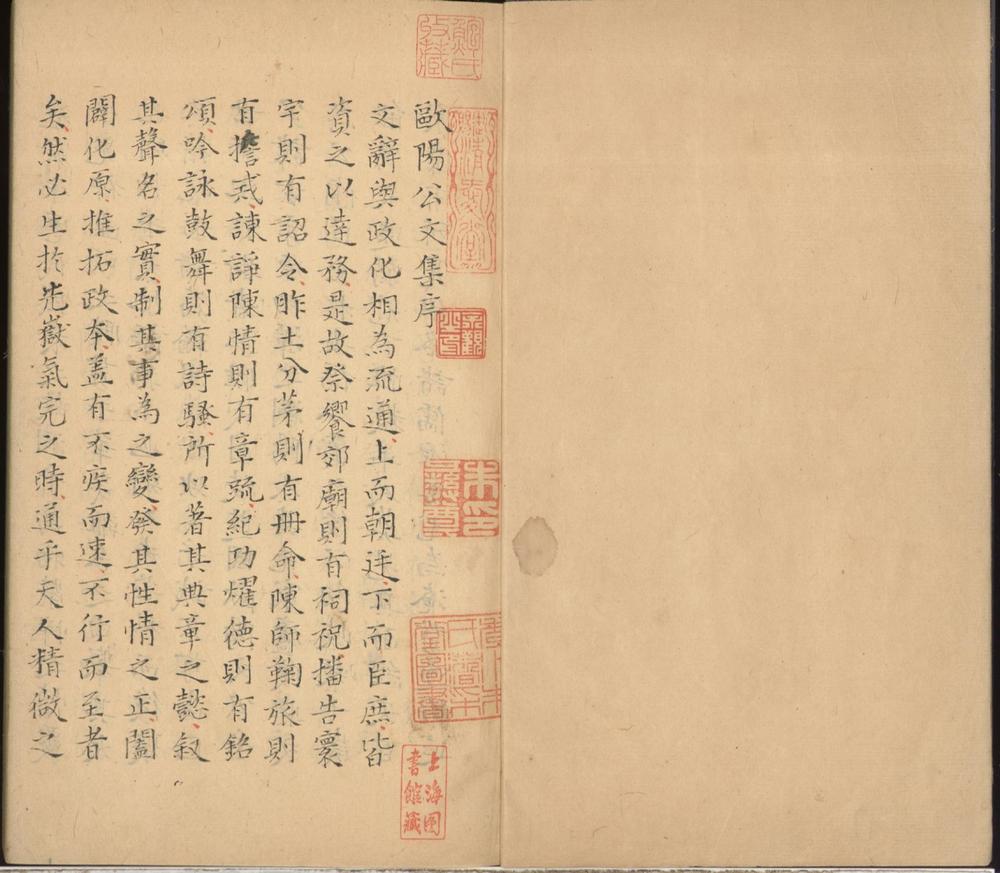 歐陽公文集序
文辭與政化相為流通上而朝廷下而臣庶皆
資之以達務是故祭饗郊廟則有祠祝播告寰
宇則有詔令胙土分茅則有册命陳師鞠旅則
有誓戒諫諍陳情則有章疏紀功耀德則有銘
頌吟詠鼓舞則有詩騷所以著其典章之懿叙
其聲名之實制其事為之變發其性情之正闔
闢化原推拓政本蓋有不疾而速不行而至者
矣然必生於光嶽氣完之時通乎天人精微之
朱印
彝尊
上海图
書館藏